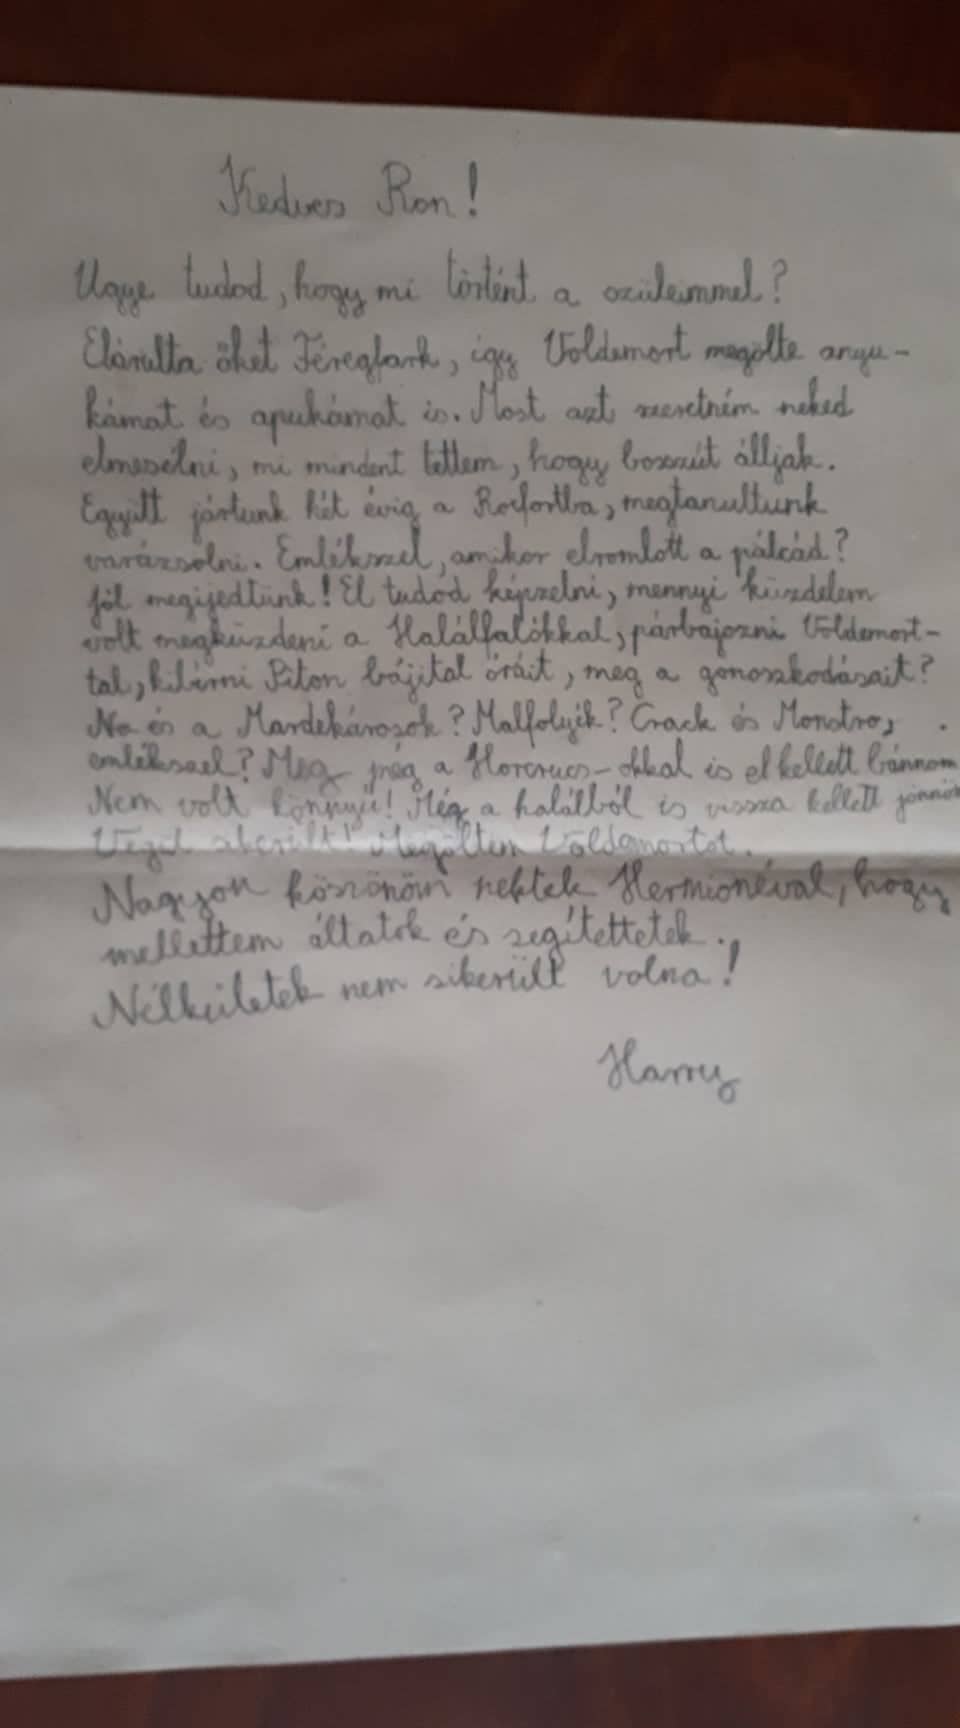 Kedves Ron!
Ugye tudod, hogy mi történt a szüleimmel?
Elárulta őket Féregfark, így Voldemort megölte anyu-
kámat és apukámat is. Most azt szeretném neked
elmesélni, mi mindent tettem, hogy bosszút álljak.
Együtt jártunk hét évig a Roxfortba, megtanultunk
varázsolni. Emlékszel, amikor elromlott a pálcád?
Jól megijedtünk! El tudod képzelni, mennyi küzdelem
volt megküzdeni a Halálfalókkal, párbajozni Voldemort-
tal, kibírni Piton bájital óráit, meg a gonoszkodásait?
Na és a Mardekárosok? Malfolyék? Crack és Monstro,
emlékszel? Meg még a Horcrucs-okkal is el kellett bánnom
Nem volt könnyű! Még a halálból is vissza kellett jönnöm
Végül sikerült! Megöltem Voldemortot.
Nagyon köszönöm nektek Hermionéval, hogy
mellettem álltatok és segítettetek.
Nélkületek nem sikerült volna!
Harry